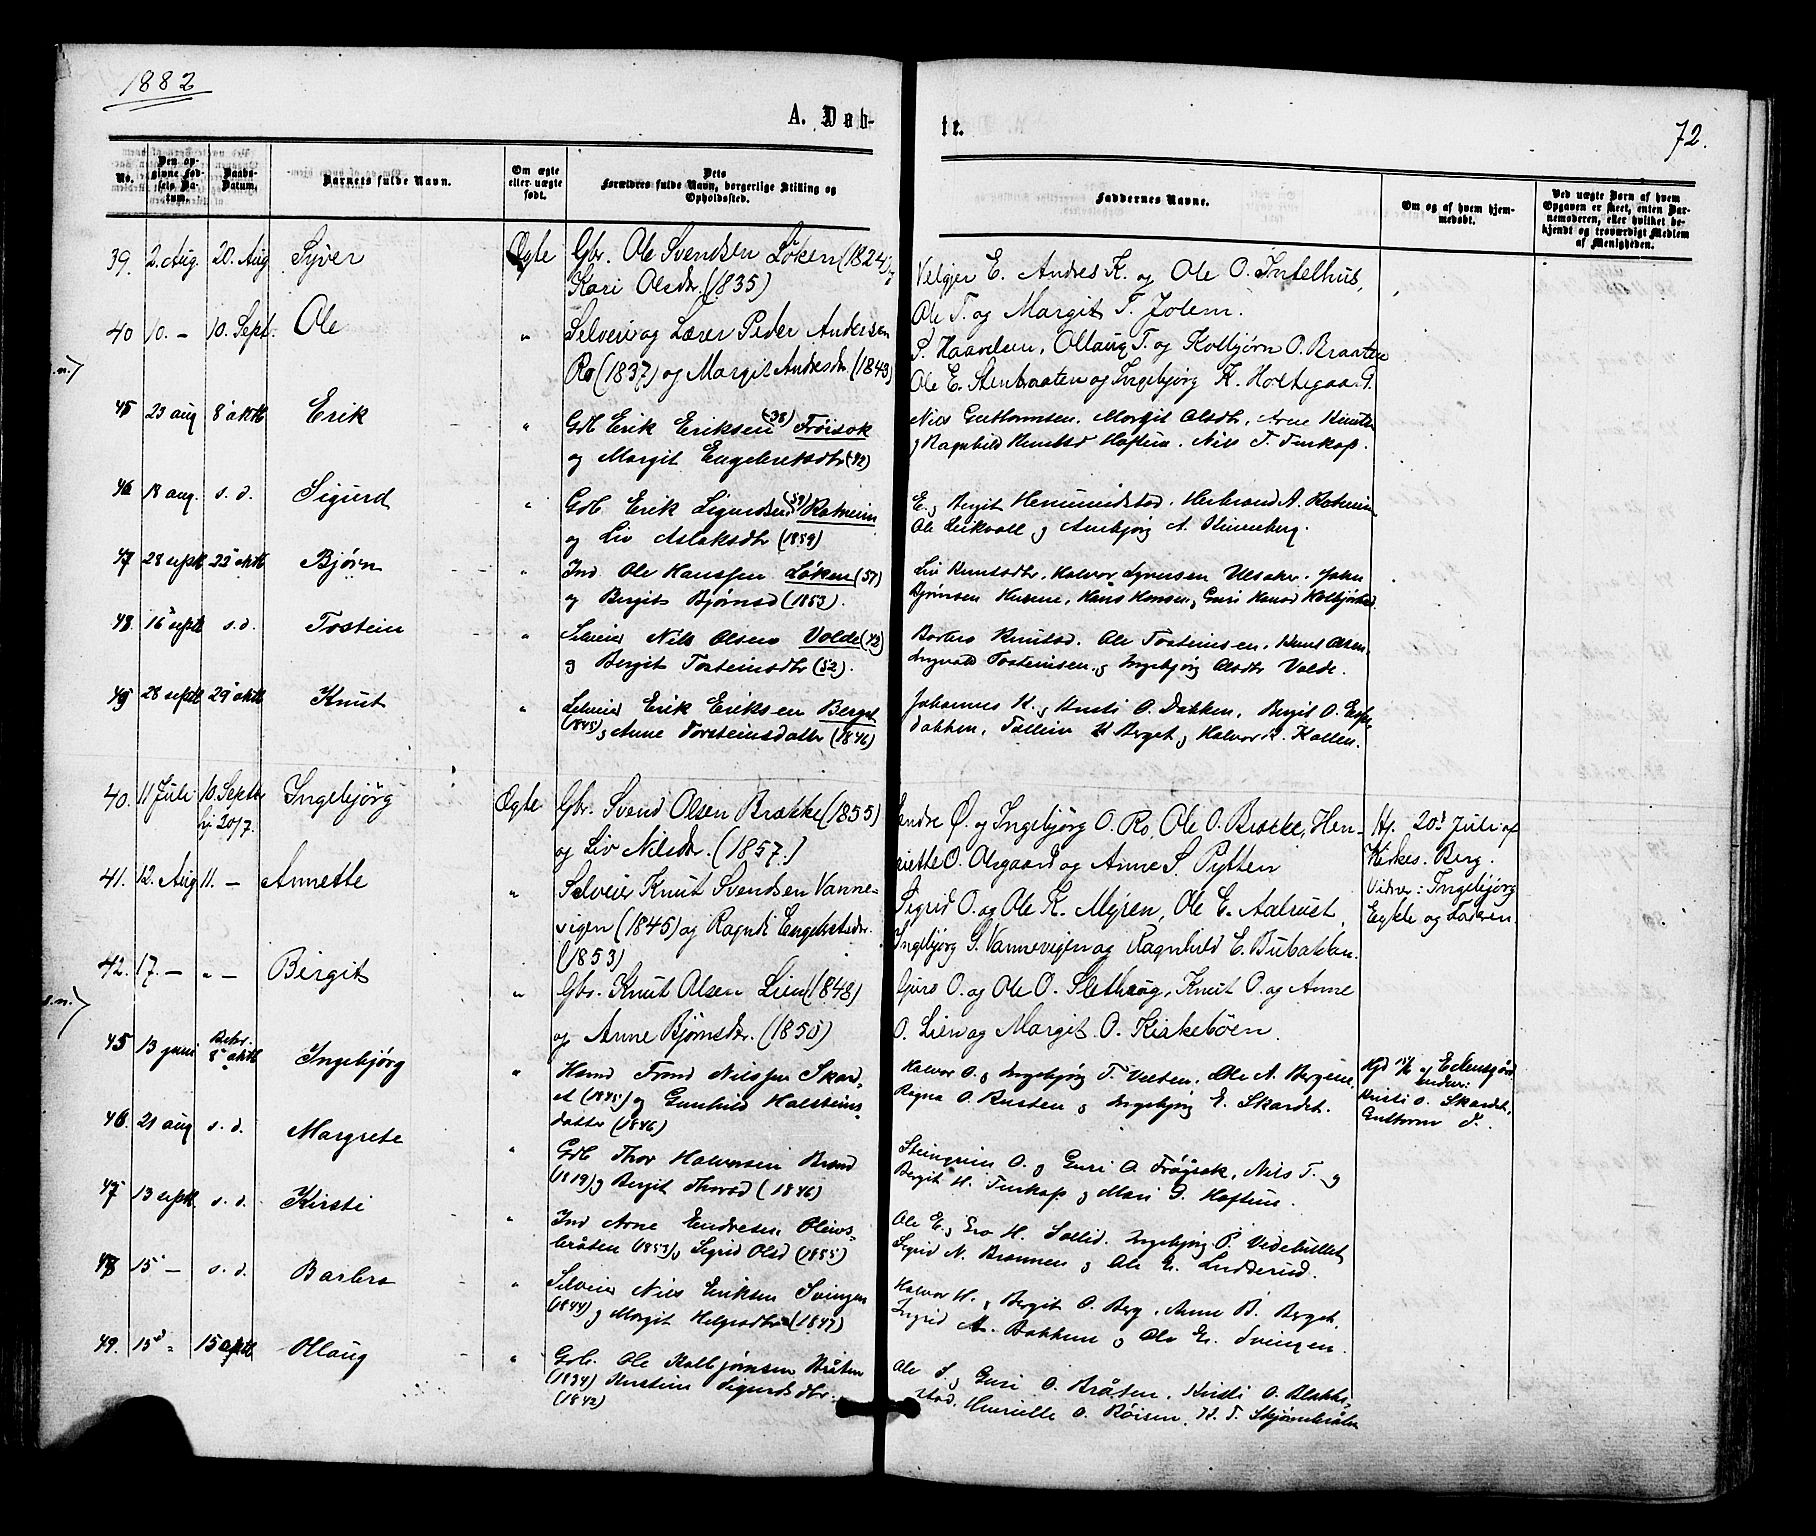 1882
A. Døb-
te.
72.
No.
Den op-
givne Fød-
sels Da-
tum.
Daabs-
Datum.
Barnets fulde Navn.
Om ægte
eller uægte
født.
Dets
Forældres fulde Navn, borgerlige Stilling og
Opholdssted.
Faddernes Navne.
Om og af hvem hjem-
medøbt.
Ved uægte Børn af hvem
Opgaven er skeet, enten Bar-
nemoderen, eller hvilket be-
kjendt og troværdigt Medlem
af Menigheden.
39. 2. Aug. 20. Aug Syver Ægte Gbr. Ole Svendsen Løken (1824) og
Kari Olsdr. (1835)
Velgjer E. Andres K. og Ole O. Intelhus,
Ole T. og Margit T. Jolem.
40 10. – 10. Sept. Ole " Selveier og Lærer Peder Andersen
Ro (1837) og Margit Andresdr (1843)
P. Haavelsen, Ollaug T. og Kolbjørn O. Braaten
Ole E. Stenbraaten og Ingebjørg K. Holtegaard.
45 23 aug 8de oktb Erik " Gdb Erik Eriksen (38) Frøisok
og Margit Engebretsdtr (42)
Niels Guthormsen, Margit Olsdtr, Arne Knuts
og Ragnhild Haftun. Nils T. Turkop.
46 18 aug. s. d. Sigurd " Gdb Erik Sigurdsen (59) Rotneim
og Liv Aslaksdtr (1859)
E. og Bergit Hemmindstad. Herbrand A. Rotneim
Ole Leikvoll og Annbjørg A. Slinneberg.
47 28 septb 22de oktb Bjørn " Ind Ole Hanssen Løken (51)
og Bergit Bjørnsd (1853).
Liv Knutsdtr, Halvor Syversen Ulsaker. John
Bjørnsen Husene, Hans Hansen, Guri Hansd Kolbjørnsd
48. 16 septb s. d. Tostein " Selveier Nils Olsen Volde (42)
og Bergit Tosteinsdtr (52).
Barbro Knutsd. Ole Tosteinsen, Knut Olsen
Ingvald Tosteinsen og Ingebjørg Olsdtr Volde.
49 28 septb 29de oktb Knut " Selveier Erik Eriksen Berget
(1845) og Anne Torsteinsdatter (1846)
Johannes K. og Kristi O. Dokken, Bergit O. Espe-
dokken, Tollein H Berget og Halvor K. Kollen.
40. 11 Juli 10. Septbr Ingebjørg Ægte Gbr. Svend Olsen Brække (1855)
hj 20/7. og Liv Nilsdr. (1857.)
Endre Ø. og Ingebjørg O. Ro, Ole O. Brække, Hen-
riette O. Olsgaard og Anne S. Pytten
Hj. 20de Juli af
Kirkes. Berg.
Vidner: Ingebjørg
Eykle og Faderen.
41. 12. Aug 11. – Annette " Selveier Knut Svendsen Vanne-
vigen (1845) og Ragndi Engebretsdr.
(1853)
Sigrid O. og Ole K. Myren, Ole E. Aalrust,
Ingebjørg S. Vannevigen og Ragnhild E. Bubakken.
42. 17. – " – Birgit " Gbr. Knut Olsen Lien (1848)
og Anne Bjørnsdr. (1850)
Guro O. og Ole O. Slethaug, Knut O. og Anne
O. Lien og Margit O. Kirkebøen
45 13 juni Bekr. 8de oktb Ingebjørg " Hsmd Trond Nilssen Skar-
et (1845) og Gunhild Halsteins-
datter (1846)
Halvor O. og Ingebjørg T. Velten. Ole A. Bergene
Ragna O. Rusten og Ingebjørg E. Skardet.
Kristi O. Skardet,
Guttorm T.
46. 21 aug s. d. Margrete " Gdb Thor Halvorsen Brand
(1819) og Bergit Thorsd (1846)
Steingrim O. og Guri O. Frøisok, Nils T. og
Bergit H. Turkop og Mari O. Haftun.
47 13 septb. s. d. Kirsti " Ind Arne Endresen Oleivs-
bråten (1853) og Sigrid Olsd (1855)
Ole E. og Gro H. Sollid. Ingebjørg P. Vedehullet
Sigrid N. Brennen og Ole E. Ludderud.
48 15 – s. d. Barbro " Selveier Nils Eriksen Svingen
(1844) og Margit Helgesdtr (1847)
Halvor H. og Bergit O. Berg. Anne B. Berget.
Ingrid A. Bakken og Ole E. Svingen.
49. 15de " 15 oktb Ollaug " Gdb. Ole Kolbjørnsen Bråten
(1834) Kirsten Sigurdsdtr.
(1842)
Ole S. og Guri O. Bråten, Kristi O. Blakke-
stad, Henrielle O. Røisen, K. T. Skjørnbråten